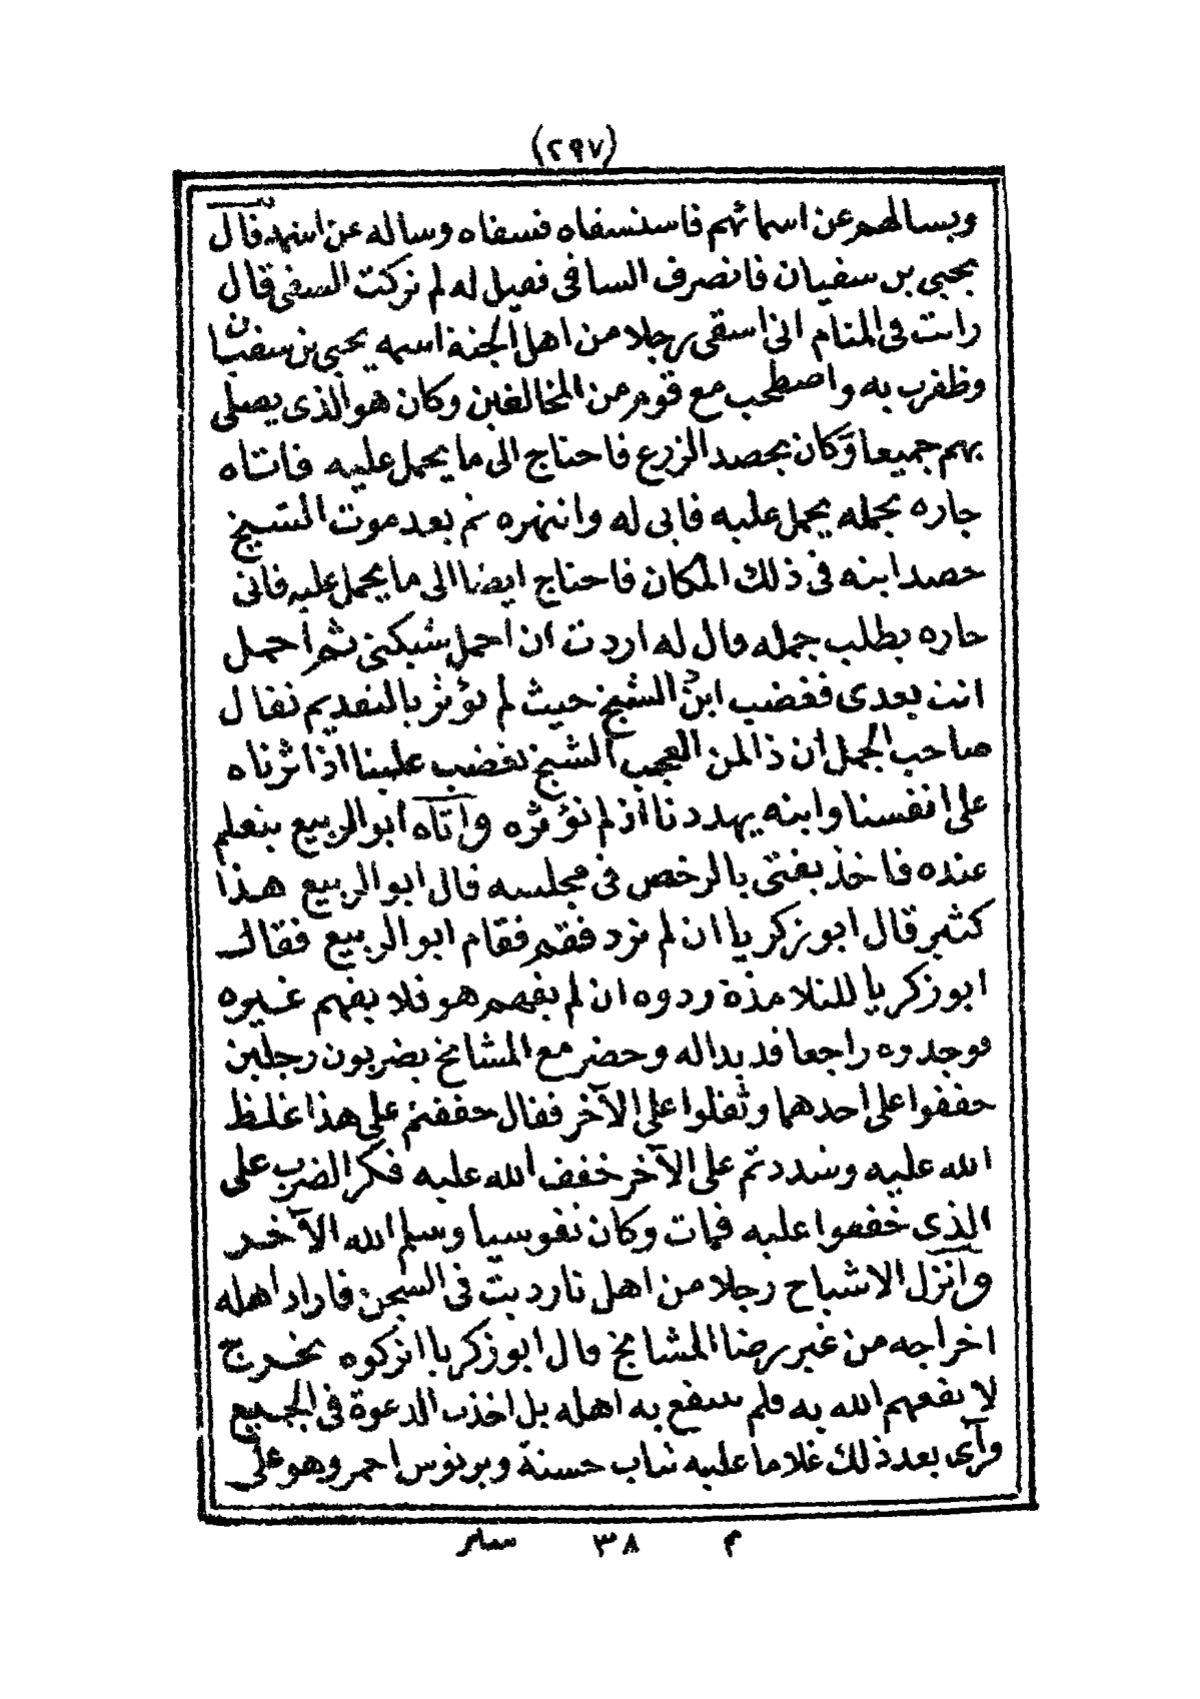 (٢٩٧)
ويسالهم عن اسمائهم فاستسقاه فسقاه وساله عن اسمه قال
يحيى بن سفيان فانصرف الساقى فقيل له لم تركت السقى قال
رأيت فى المنام انى اسقى رجلا من اهل الجنة اسمه يحيى بن سفيان
وظفرت به واصطحب مع قوم من المخالفين وكان هو الذى يصلى
بهم جميعا وكان يحصد الزرع فاحتاج الى ما يحمل عليه فاتاه
جاره بجمله يحمل عليه فابى له وانتهره ثم بعد موت الشيخ
حصد ابنه فى ذلك المكان فاحتاج ايضا الى ما يحمل عليه فاتى
جاره يطلب جمله قال له اردت ان احمل شبكتى ثم احمل
انت بعدى فغضب ابن الشيخ حيث لم يؤثر بالتقديم فقال
صاحب الجمل ان ذا لمن العجب الشيخ يغضب علينا اذا اثرناه
على انفسنا وابنه يهددنا اذ لم نؤثره وأتاه ابو الربيع يتعلم
عنده فاخذ يفتى بالرخص فى مجلسه قال ابو الربيع هذا
كثير قال ابو زكريا ان لم ترد فقم فقام ابو الربيع فقال
ابو زكريا للتلامذة ردوه ان لم يفهم هو فلا يفهم غيره
فوجدوه راجعا قد بدا له وحضر مع المشائخ يضربون رجلين
خففوا على احدهما وثقلوا على الآخر فقال خففتم على هذا غلظ
الله عليه وشددتم على الآخر خفف الله عليه فكر الضرب على
الذى خففوا عليه فمات وكان نفوسيا وسلم الله الآخر
وأنزل الاشياخ رجلا من اهل تارديت فى السجن فاراد اهله
اخراجه من غير رضا المشائخ قال ابو زكريا اتركوه يخرج
لا نفعهم الله به فلم ينتفع به اهله بل اخذت الدعوة فى الجميع
ورآى بعد ذلك غلاما عليه ثياب حسنة وبرنوس احمر وهو على
م ٣٨ سير